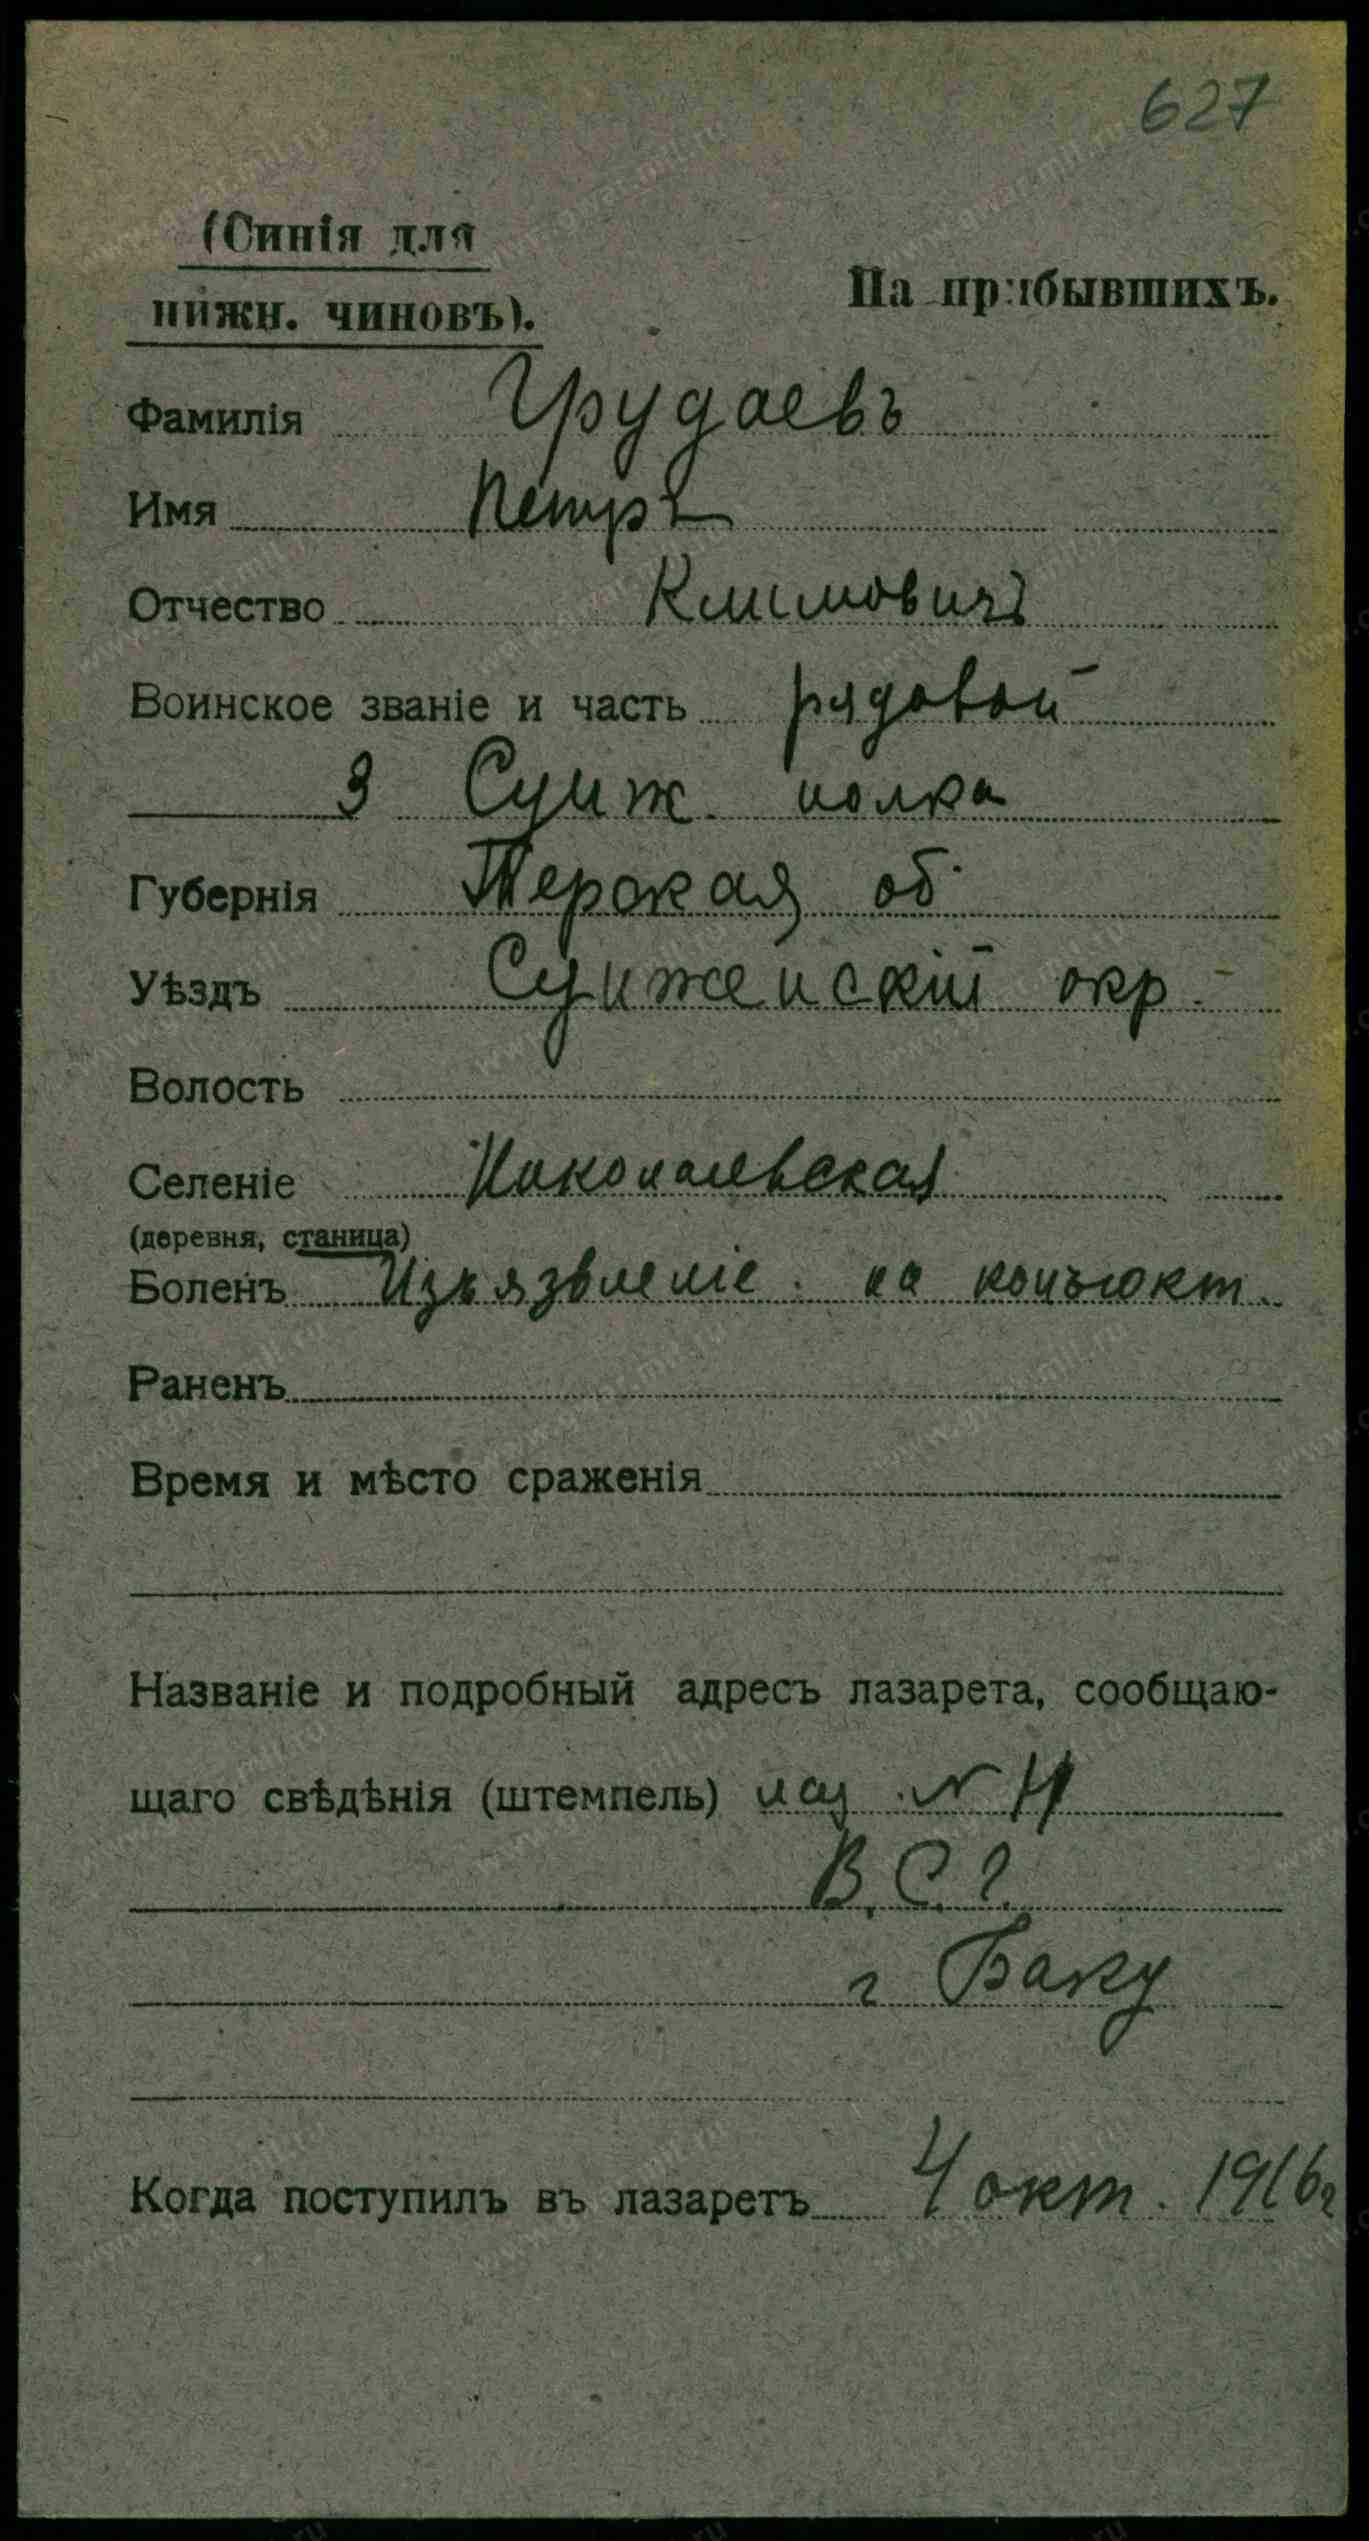 627
(Синія для
нижн. чиновъ).
На прибывшихъ.
Фамилія Грудаевъ
Имя Петръ
Отчество Климовичъ
Воинское званіе и часть рядовой
3 Сунж. полка
Губернія Терская об.
Уѣздъ Сунженскій окр.
Волость
Селеніе Николаевская
(деревня, станица)
Боленъ Изъязвленіе на конъюкт.
Раненъ
Время и мѣсто сраженія
Названіе и подробный адресъ лазарета, сообщаю-
щаго свѣдѣнія (штемпель) лаз №
В. С. Г.
г Баку
Когда поступилъ въ лазаретъ 4 окт. 1916 г